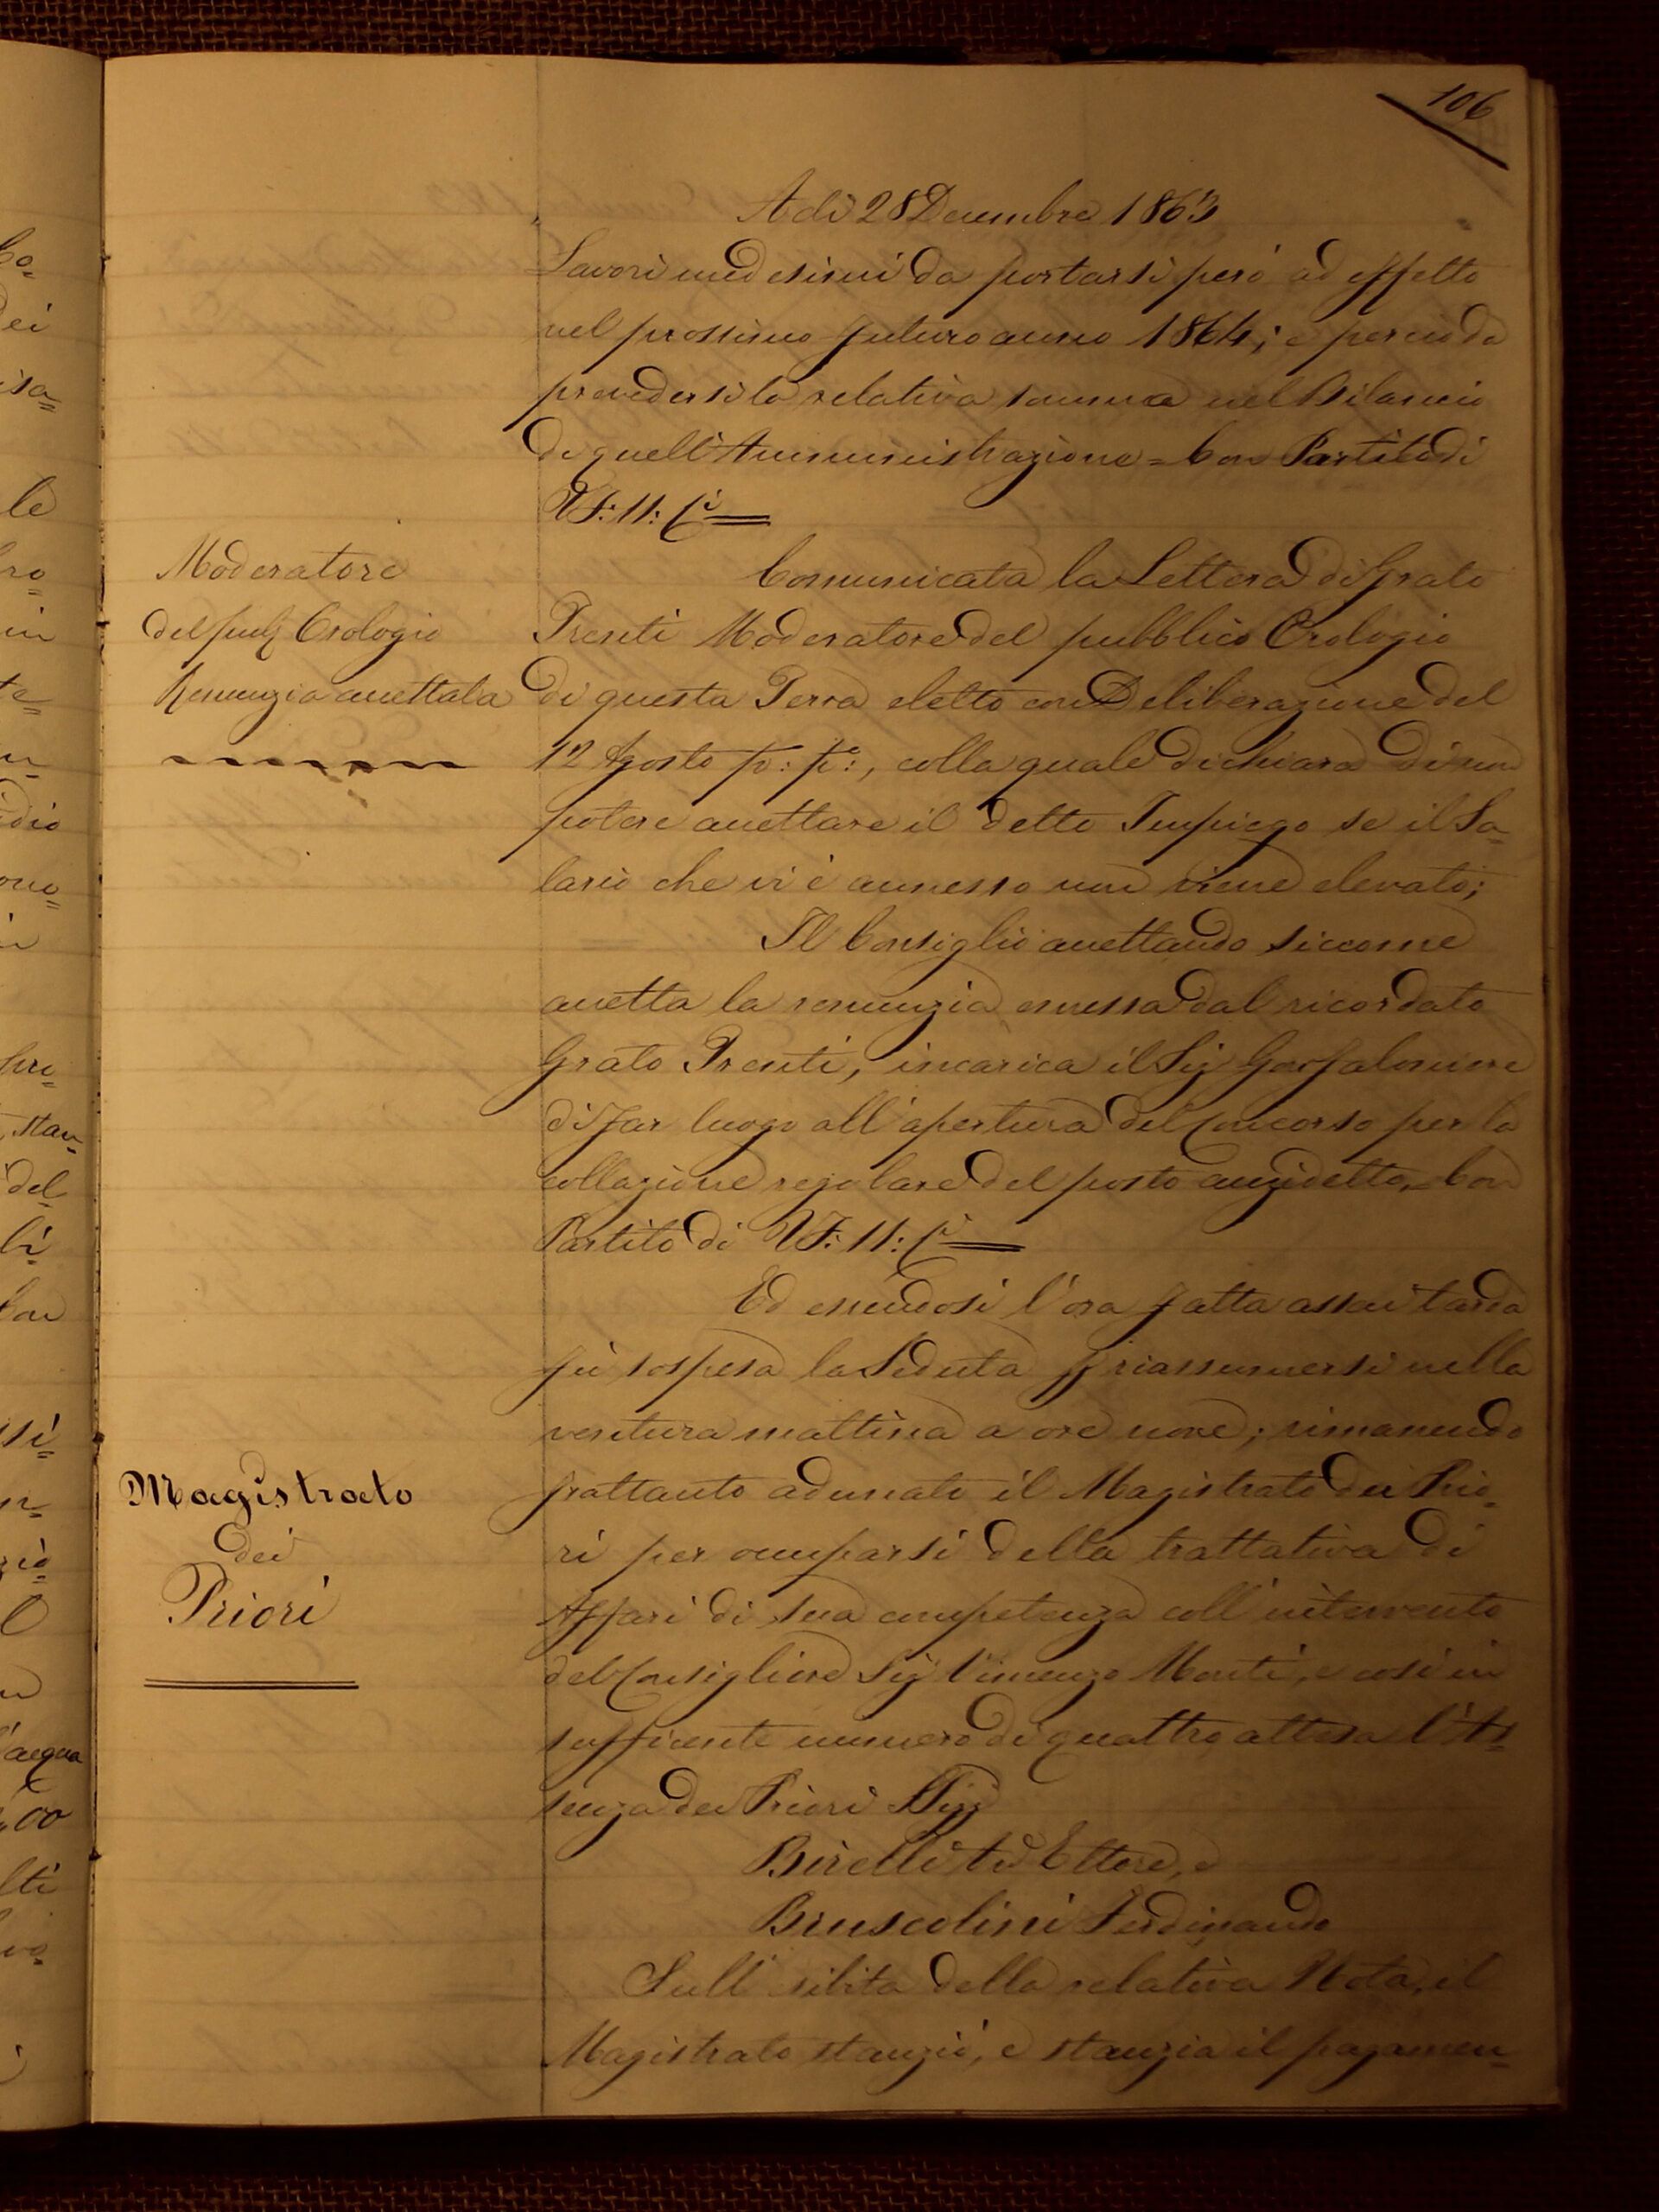 106
Adì 28 Decembre 1863
Lavori medesimi da portarsi però ad effetto
nel prossimo futuro anno 1864; e perciò da
prevedersi la relativa somma nel Bilancio
di quell'Amministrazione = Con Partito di
VF: 11: Ci
Moderatore
del pub Orologio
Renunzia accettata
Comunicata la Lettera di Grato
Prenti Moderatore del pubblico Orologio
di questa Terra eletto con Deliberazione del
12 Agosto p: p:, colla quale dichiara di non
potere accettare il detto Impiego se il Sa=
lario che vi è annesso non viene elevato;
Il Consiglio accettando siccome
accetta la renunzia emessa dal ricordato
Grato Prenti, incarica il Sig Gonfaloniere
di far luogo all'apertura del Concorso per la
collazione regolare del posto anzidetto, = Con
Partito di VF: 11: Ci
Ed essendosi l'ora fatta assai tarda
fù sospesa la Seduta p riassumersi nella
ventura mattina a ore nove; rimanendo
frattanto adunato il Magistrato dei Prio=
Magistrato
dei
Priori
ri per occuparsi della trattativa di
Affari di sua competenza coll'intervento
del Consigliere Sig Vincenzo Monti, e così in
sufficente numero di quattro attesa l'As=
senza dei Priori SSigg
Birelli Ettore, e
Bruscolini Ferdinando
Sull'esibita della relativa Nota, il
Magistrato stanziò, e stanzia il pagamen=
Co=
dei
isa=
le
in
te=
idio
stan=
del
li
Con
ssi=
l'acqua
00
lti